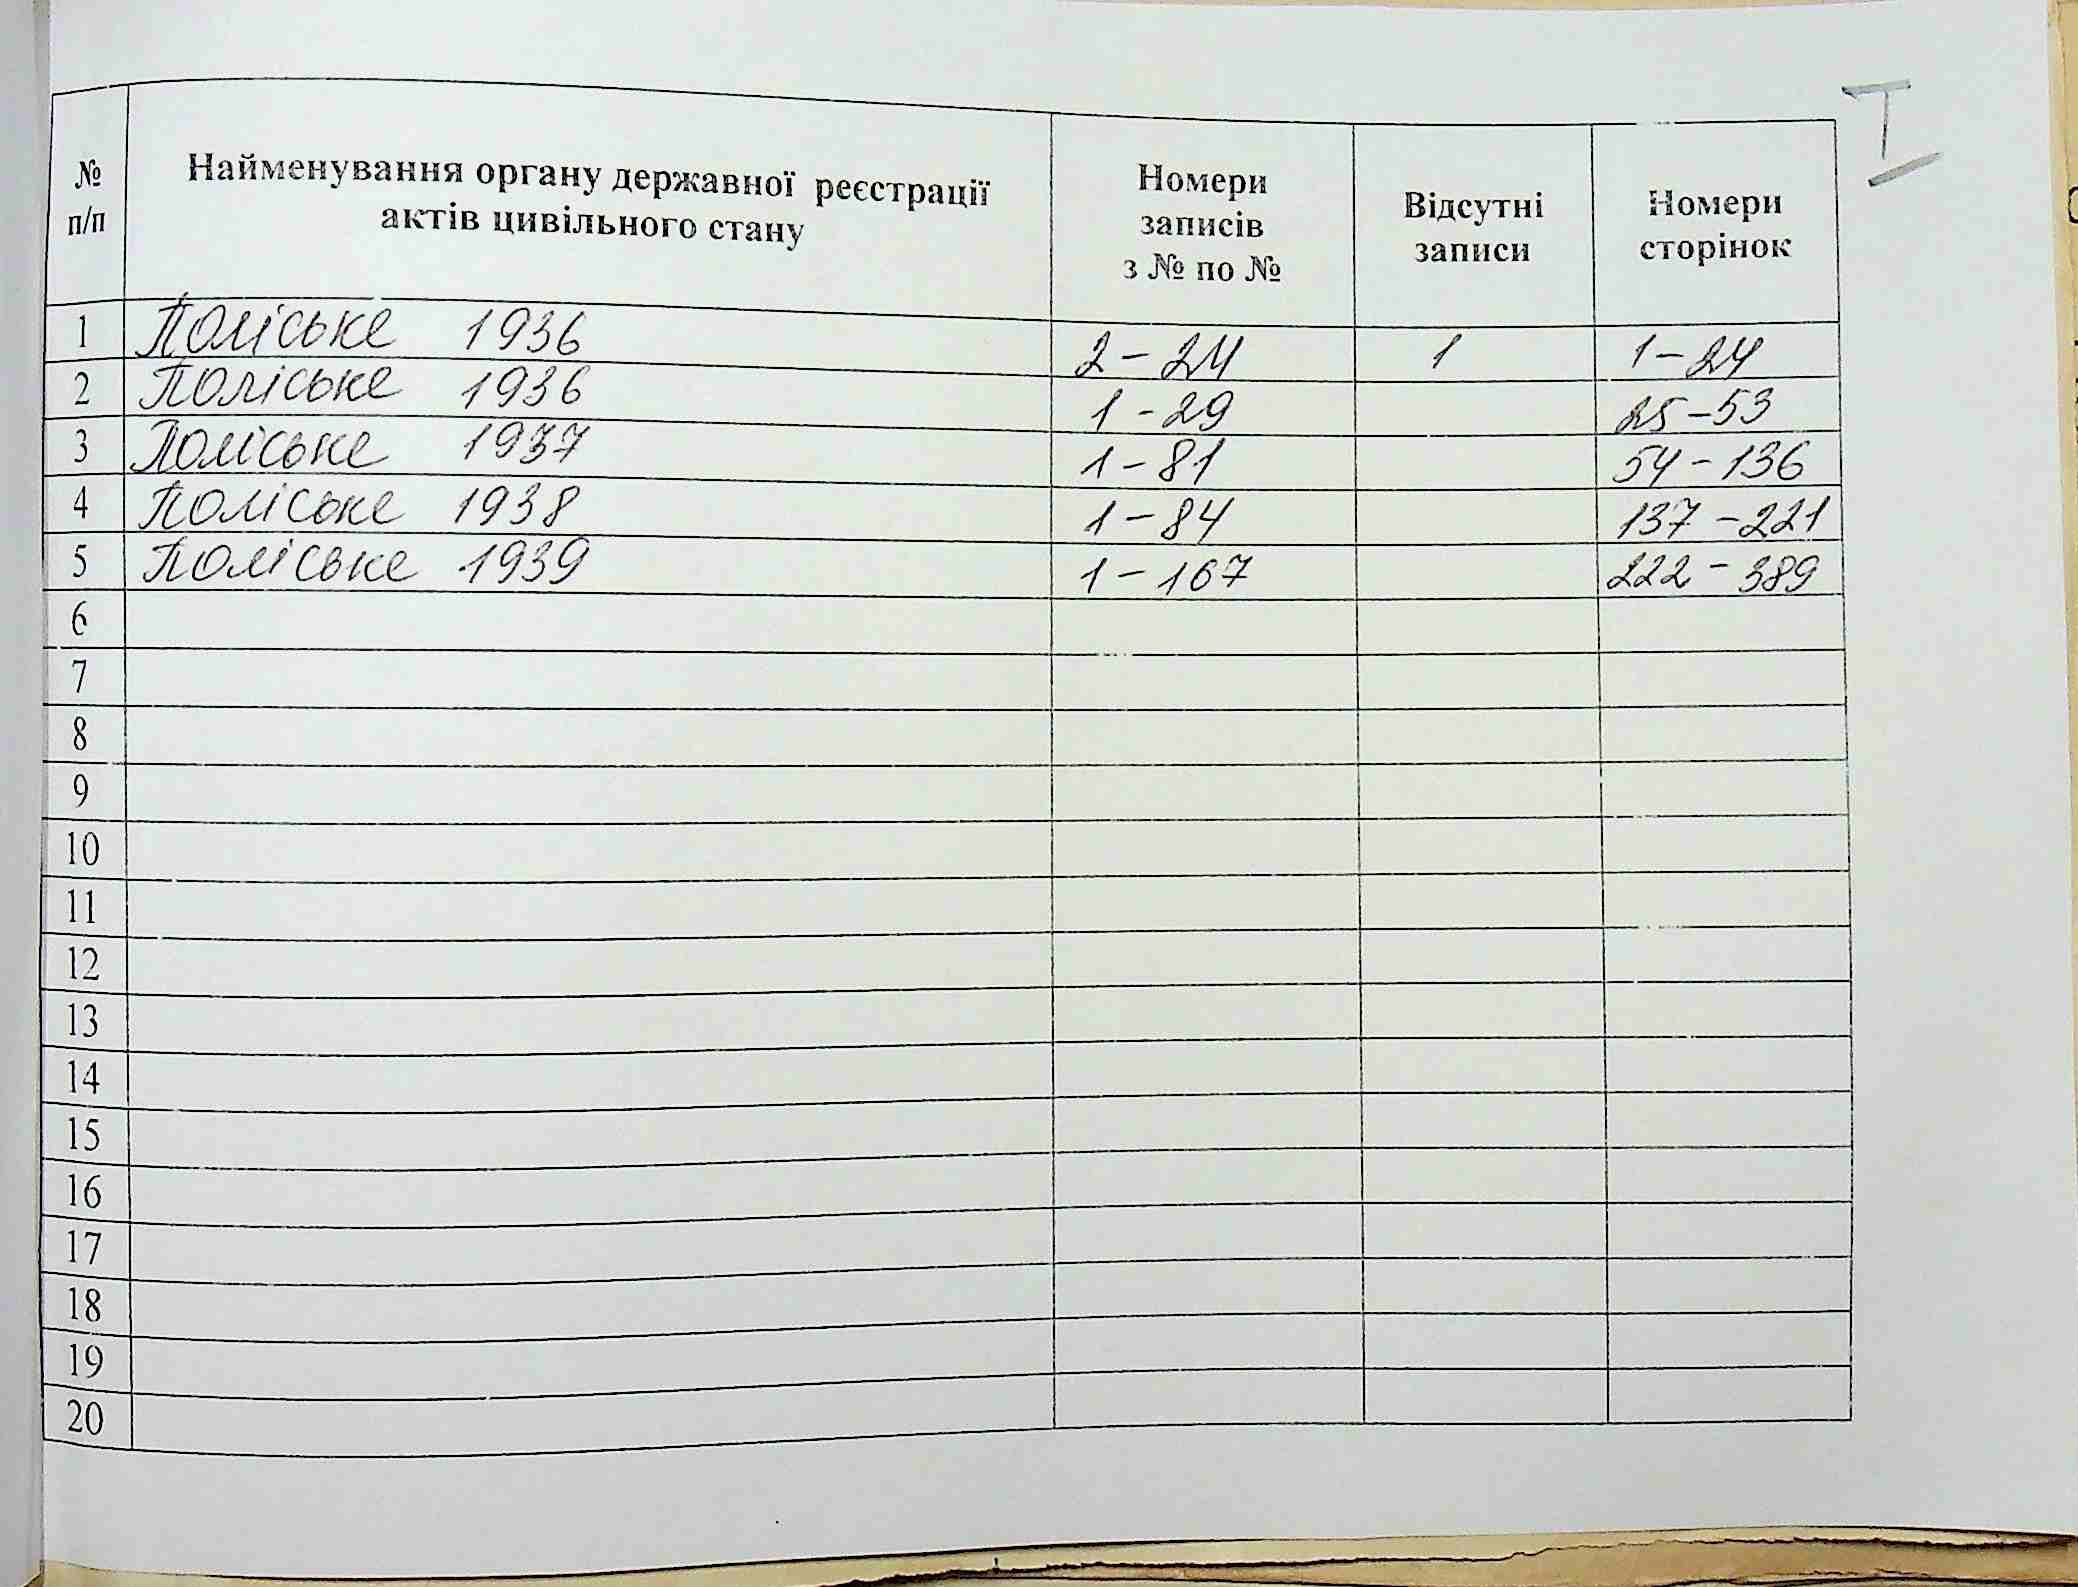 I
№ п/п Найменування органу державної реєстрації актів цивільного стану Номери записів з № по № Відсутні записи Номери сторінок
1 Поліське 1936 2-24 1 1-24
2 Поліське 1936 1-29 25-53
3 Поліське 1937 1-81 54-136
4 Поліське 1938 1-84 137-221
5 Поліське 1939 1-167 222-389
6
7
8
9
10
11
12
13
14
15
16
17
18
19
20